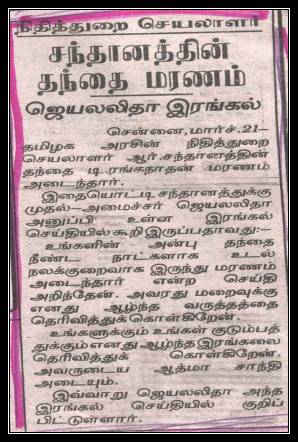 நிதித்துறை செயலாளர்
சந்தானத்தின்
தந்தை மரணம்
ஜெயலலிதா இரங்கல்
சென்னை,மார்ச்.21–
தமிழக அரசின் நிதித்துறை
செயலாளர் ஆர்.சந்தானத்தின்
தந்தை டி.ரங்கநாதன் மரணம்
அடைந்தார்.
இதையொட்டி சந்தானத்துக்கு
முதல்–அமைச்சர் ஜெயலலிதா
அனுப்பி உள்ள இரங்கல்
செய்தியில் கூறி இருப்பதாவது:–
உங்களின் அன்பு தந்தை
நீண்ட நாட்களாக உடல்
நலக்குறைவாக இருந்து மரணம்
அடைந்தார் என்ற செய்தி
அறிந்தேன். அவரது மறைவுக்கு
எனது ஆழ்ந்த வருத்தத்தை
தெரிவித்துக்கொள்கிறேன்.
உங்களுக்கும் உங்கள் குடும்பத்
துக்கும் எனது ஆழ்ந்த இரங்கலை
தெரிவித்துக் கொள்கிறேன்.
அவருடைய ஆத்மா சாந்தி
அடையும்.
இவ்வாறு ஜெயலலிதா அந்த
இரங்கல் செய்தியில் குறிப்
பிட்டுள்ளார்.